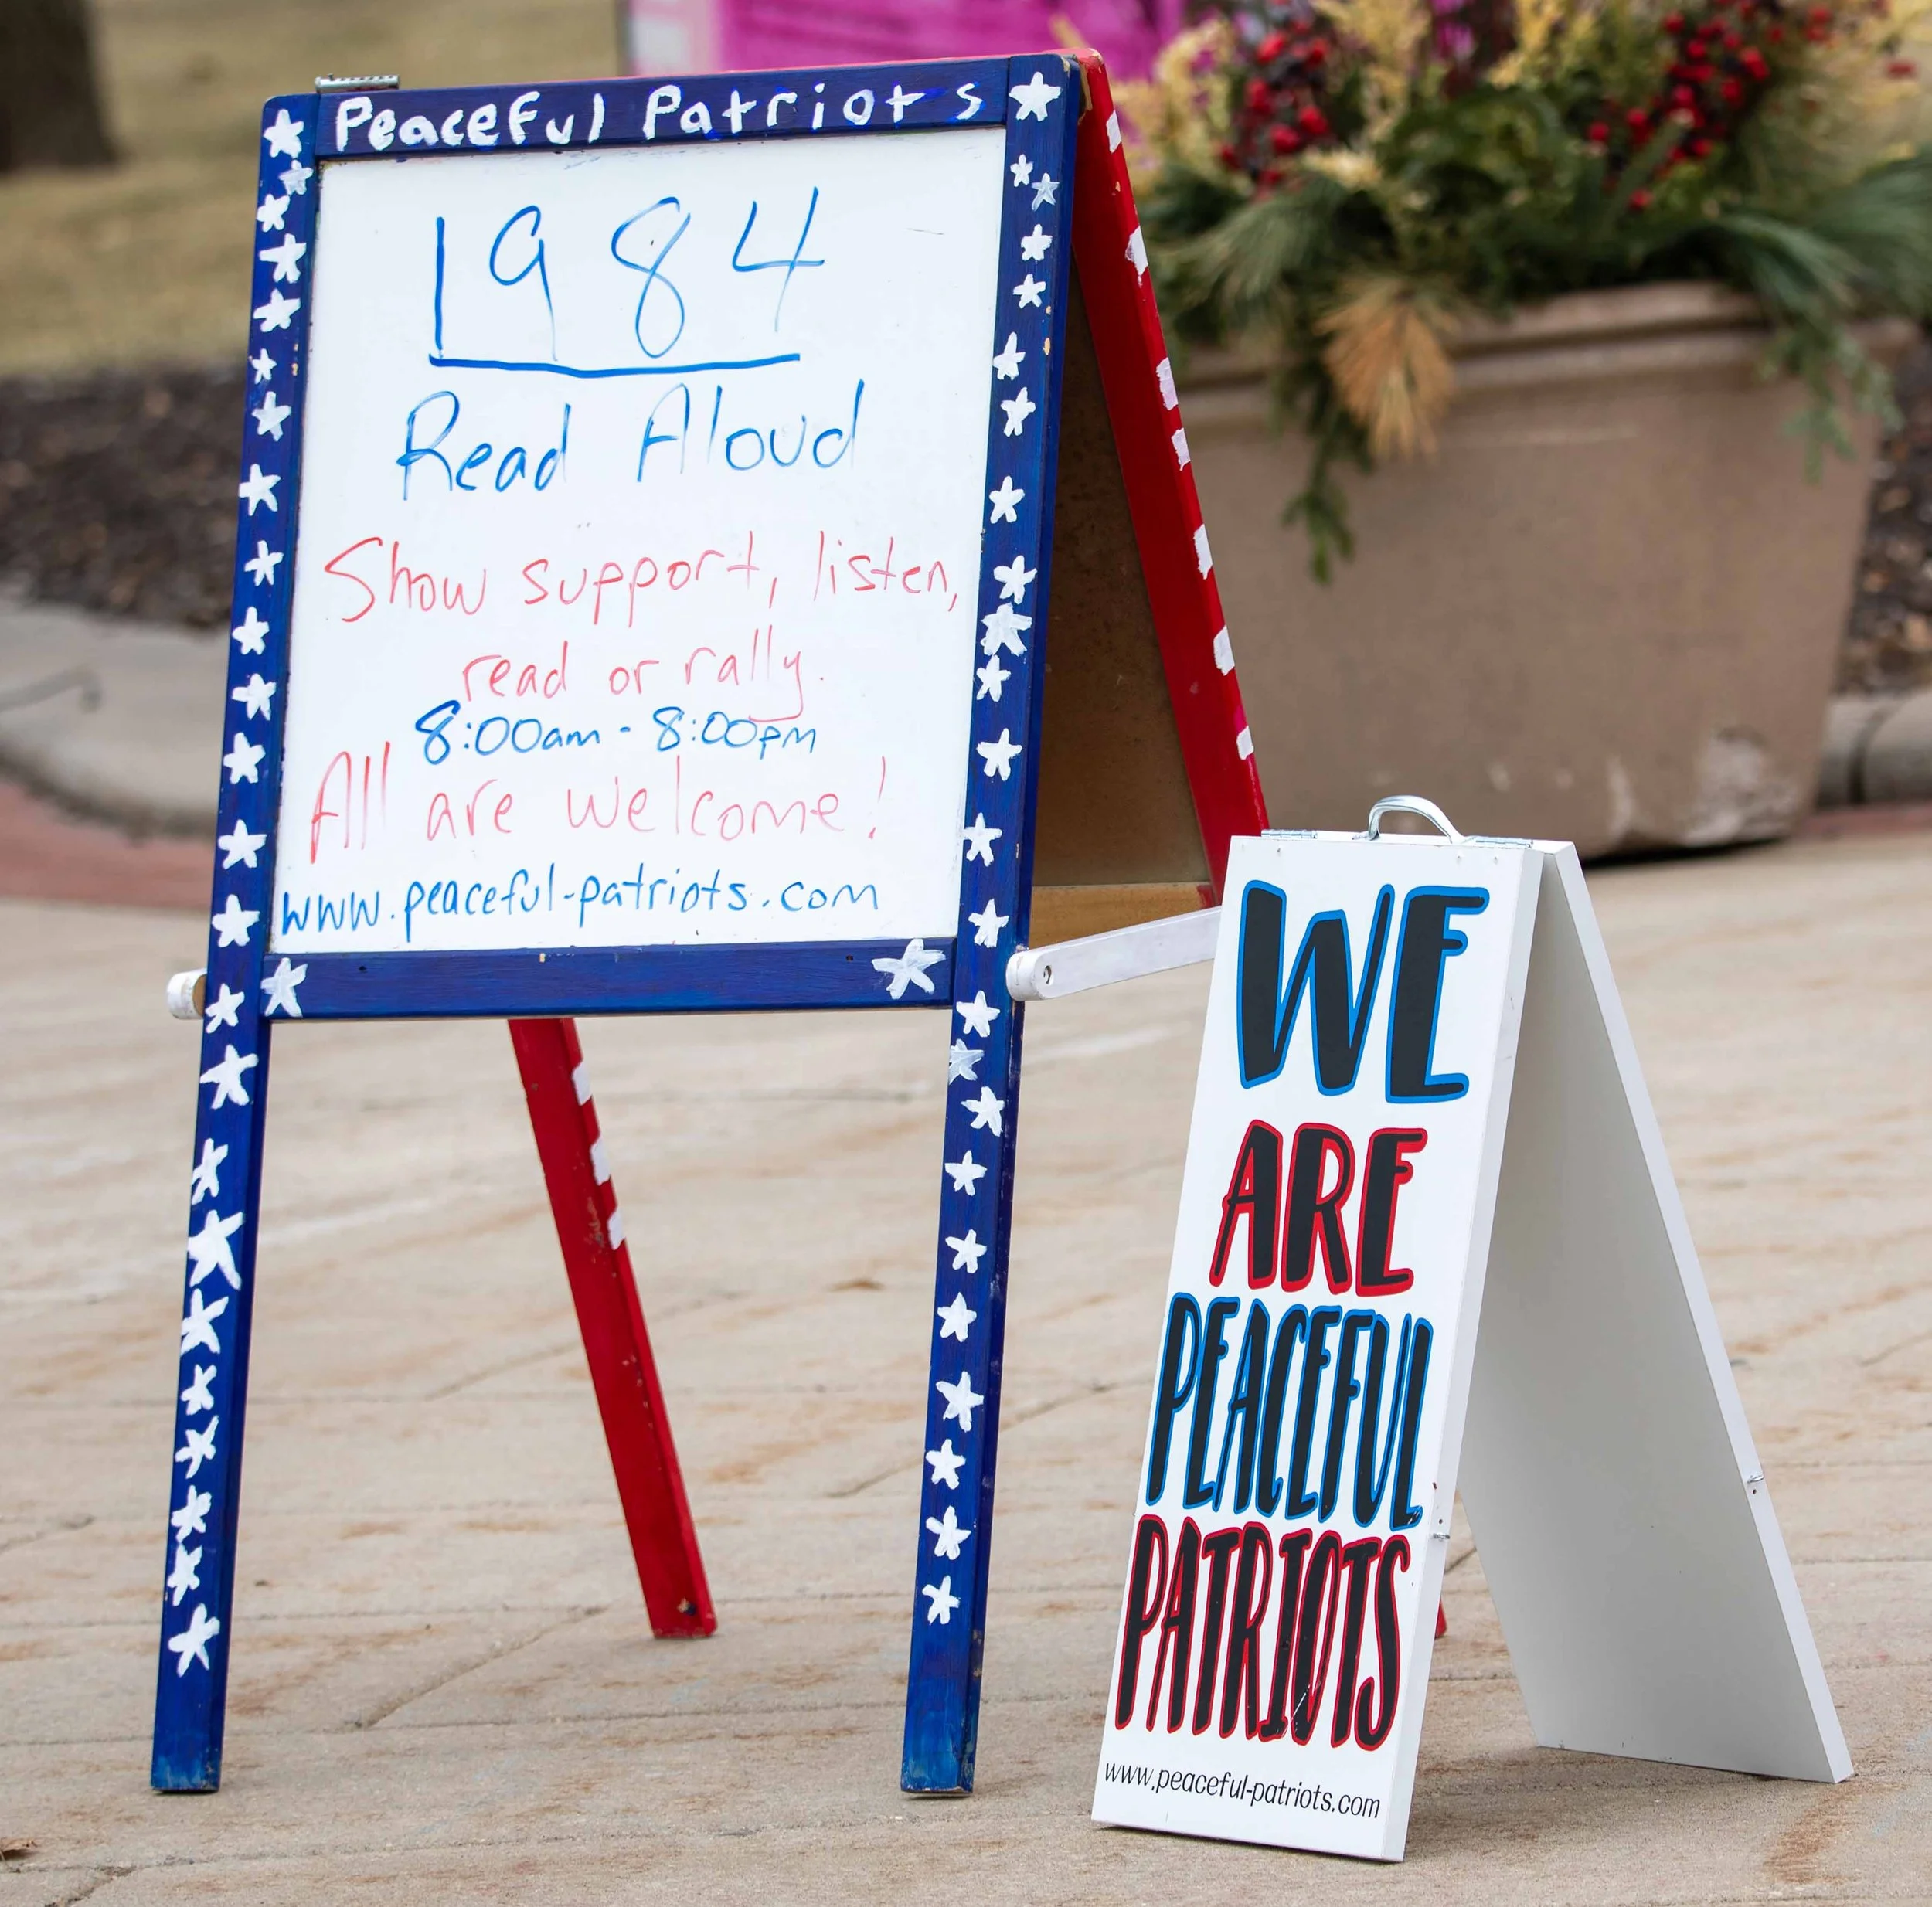 Peaceful Patriots
1984
Read Aloud
Show support, listen,
read or rally.
8:00am - 8:00pm
All are welcome!
www.peaceful-patriots.com
WE
ARE
PEACEFUL
PATRIOTS
www.peaceful-patriots.com